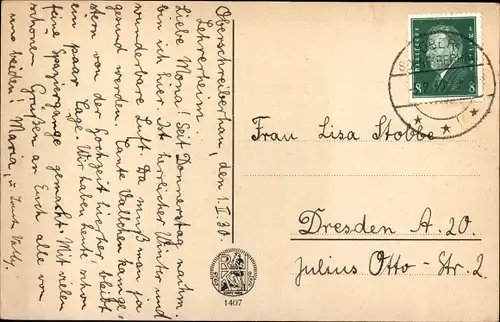 Oberschreiberhau, den 1. II. 30.
Lehrerheim.
Liebe Mona! Seit Donnerstag nachm.
bin ich hier. Ist herrlicher Winter und
wunderbare Luft. Da muß man ja
gesund werden. Tante Vallchen kam ge-
stern von der Hochzeit hierher, bleibt
ein paar Tage. Wir haben heute schon
feine Spaziergänge gemacht. Mit vielen
schönen Grüßen an Euch alle von
uns beiden! Maria, u. Tante Vally.
8 8
Frau Lisa Stobbe
Dresden A. 20.
Julius Otto-Str. 2.
1407